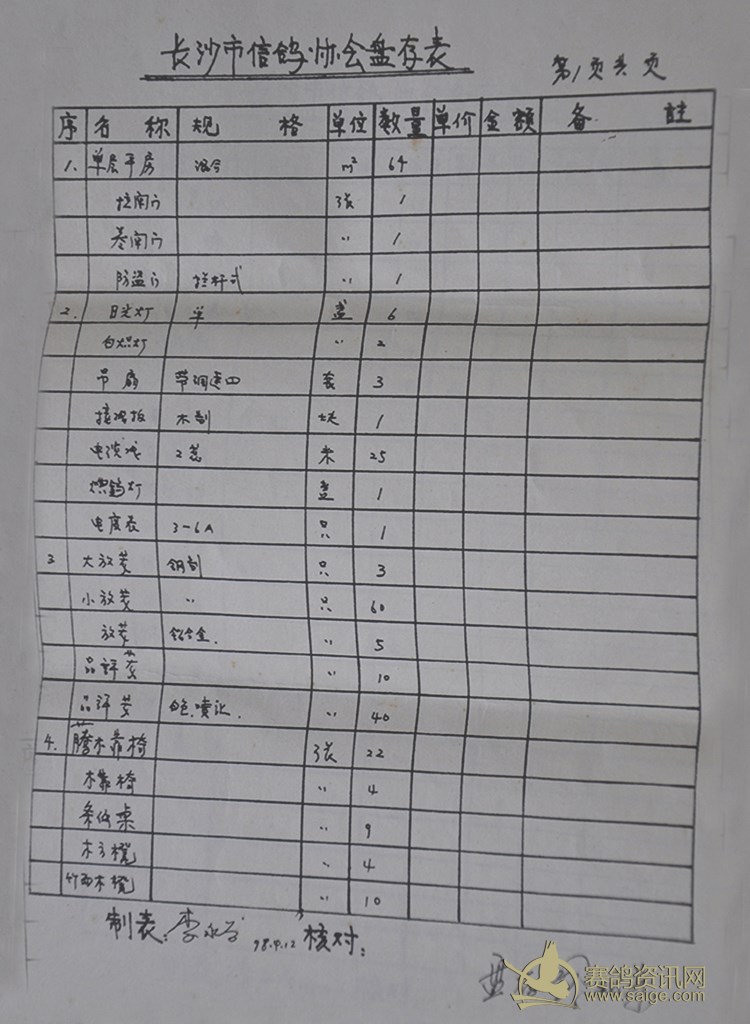 长沙市信鸽协会盘存表
第1页共 页
序 名称 规格 单位 数量 单价 金额 备註
1. 单层平房 混合 m² 64
拉闸门 张 1
卷闸门 〃 1
防盗门 拦杆式 〃 1
2. 日光灯 单 盏 6
白炽灯 〃 2
吊扇 带调速四 套 3
接线板 木制 块 1
电缆线 2芯 米 25
盏 1
电度表 3-6A 只 1
3 大放笼 钢制 只 3
小放笼 〃 只 60
放笼 铝合金. 〃 5
品评笼 〃 10
品评笼 〃 40
4. 藤木靠椅 张 22
木靠椅 〃 4
〃 9
木方凳 〃 4
〃 10
制表: 李 98.4.12 核对:
赛鸽资讯网
www.saigc.com